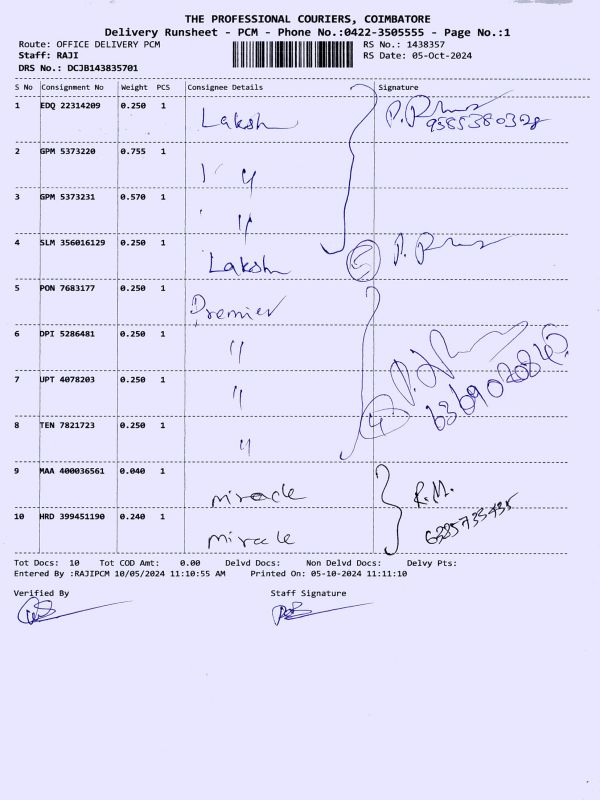 THE PROFESSIONAL COURIERS, COIMBATORE
Delivery Runsheet - PCM - Phone No.:0422-3505555 - Page No.:1
Route: OFFICE DELIVERY PCM RS No.: 1438357
Staff: RAJI RS Date: 05-Oct-2024
DRS No.: DCJB143835701
S No Consignment No Weight PCS Consignee Details Signature
1 EDQ 22314209 0.250 1 Laksh
2 GPM 5373220 0.755 1 "
3 GPM 5373231 0.570 1 "
4 SLM 356016129 0.250 1 Laksh
5 PON 7683177 0.250 1 Premier
6 DPI 5286481 0.250 1 "
7 UPT 4078203 0.250 1 "
8 TEN 7821723 0.250 1 "
9 MAA 400036561 0.040 1 miracle R.M.
10 HRD 399451190 0.240 1 miracle
Tot Docs: 10 Tot COD Amt: 0.00 Delvd Docs: Non Delvd Docs: Delvy Pts:
Entered By :RAJIPCM 10/05/2024 11:10:55 AM Printed On: 05-10-2024 11:11:10
Verified By Staff Signature